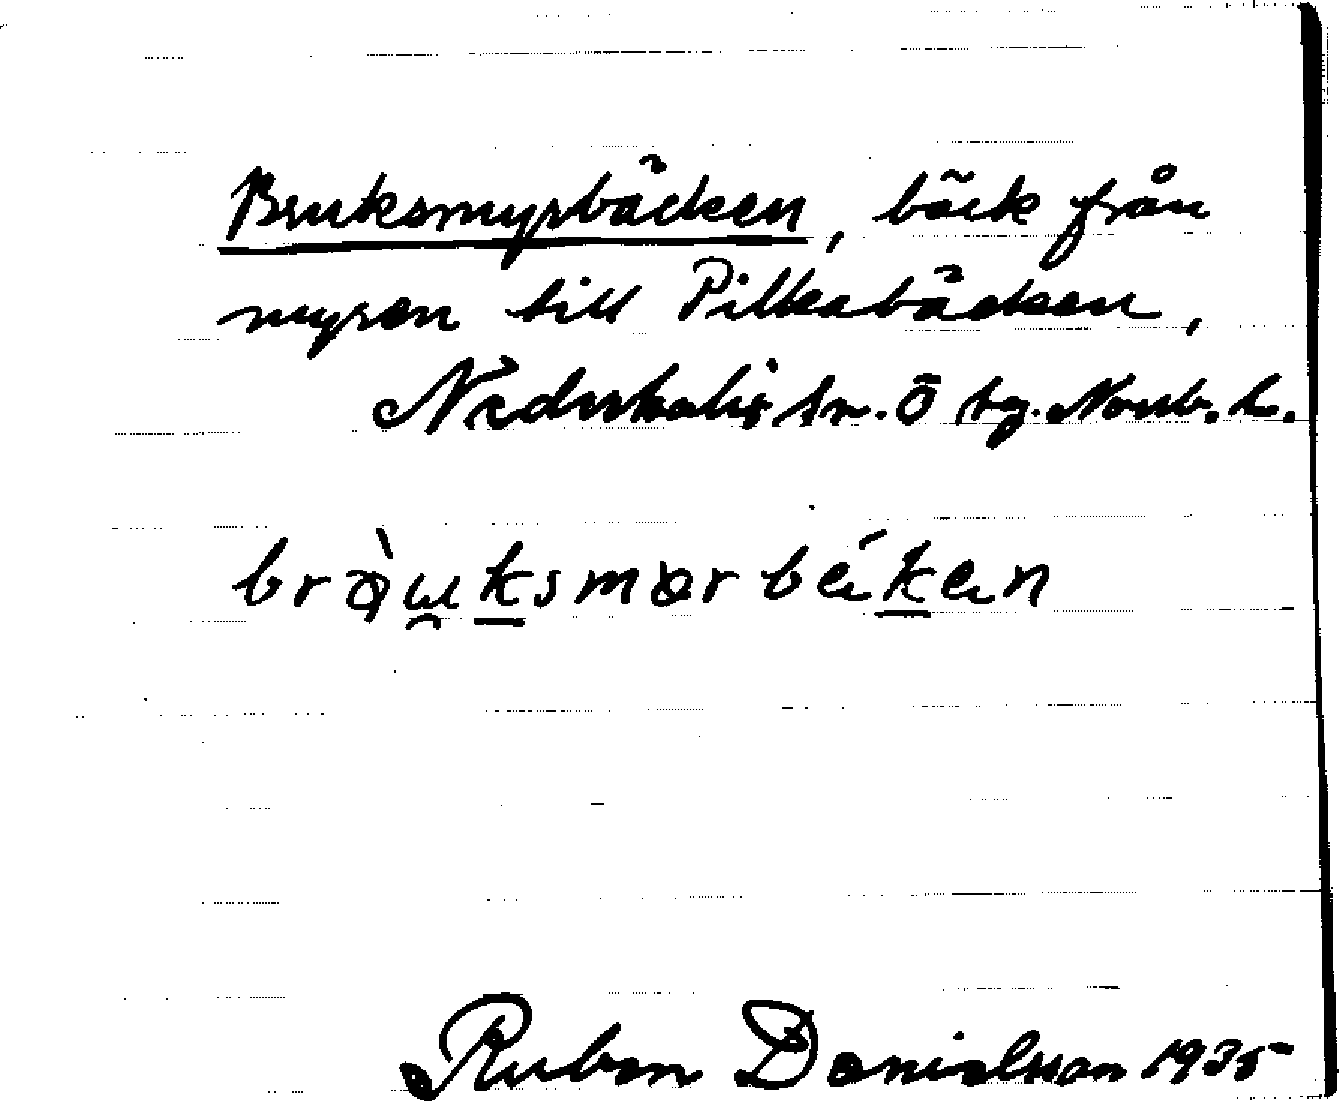 Bruksmyrbäcken, bäck från
myren till Pilkabäcken,
Nederkalix sn. Ö by. Norrb. l.
bròu̯ksmør béken
Ruben Danielsson 1935